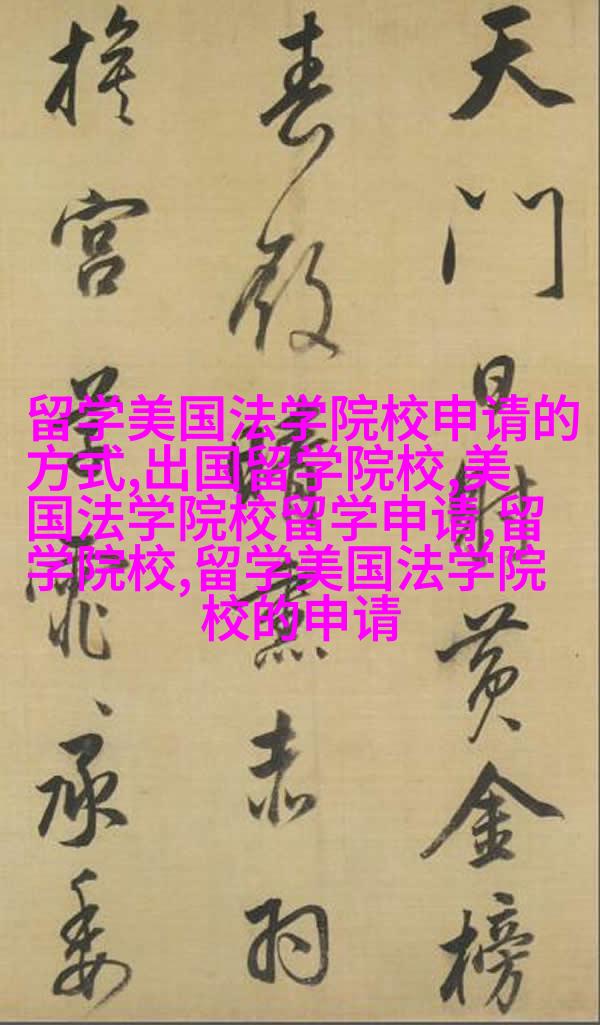 天門日射黃金榜
春殿晴熏赤羽
旗宮草霏〻承委
留学美国法学院校申请的
方式,出国留学院校,美
国法学院校留学申请,留
学院校,留学美国法学院
校的申请